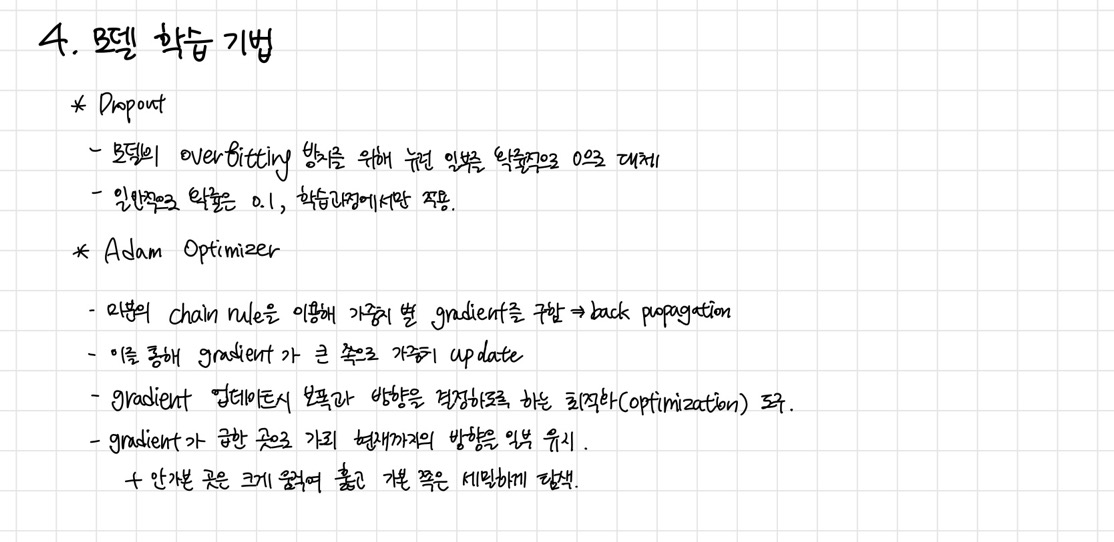 4. 모델 학습 기법
* Dropout
- 모델의 overfitting 방지를 위해 뉴런 일부를 확률적으로 0으로 대체
- 일반적으로 확률은 0.1, 학습과정에서만 적용.
* Adam Optimizer
- 미분의 chain rule을 이용해 가중치 별 gradient를 구함 → back propagation
- 이를 통해 gradient가 큰 쪽으로 가중치 update
- gradient 업데이트시 보폭과 방향을 결정하도록 하는 최적화(optimization) 도구.
- gradient가 급한 곳으로 가되 현재까지의 방향을 일부 유지.
+ 안가본 곳은 크게 움직여 훑고 가본 쪽은 세밀하게 탐색.